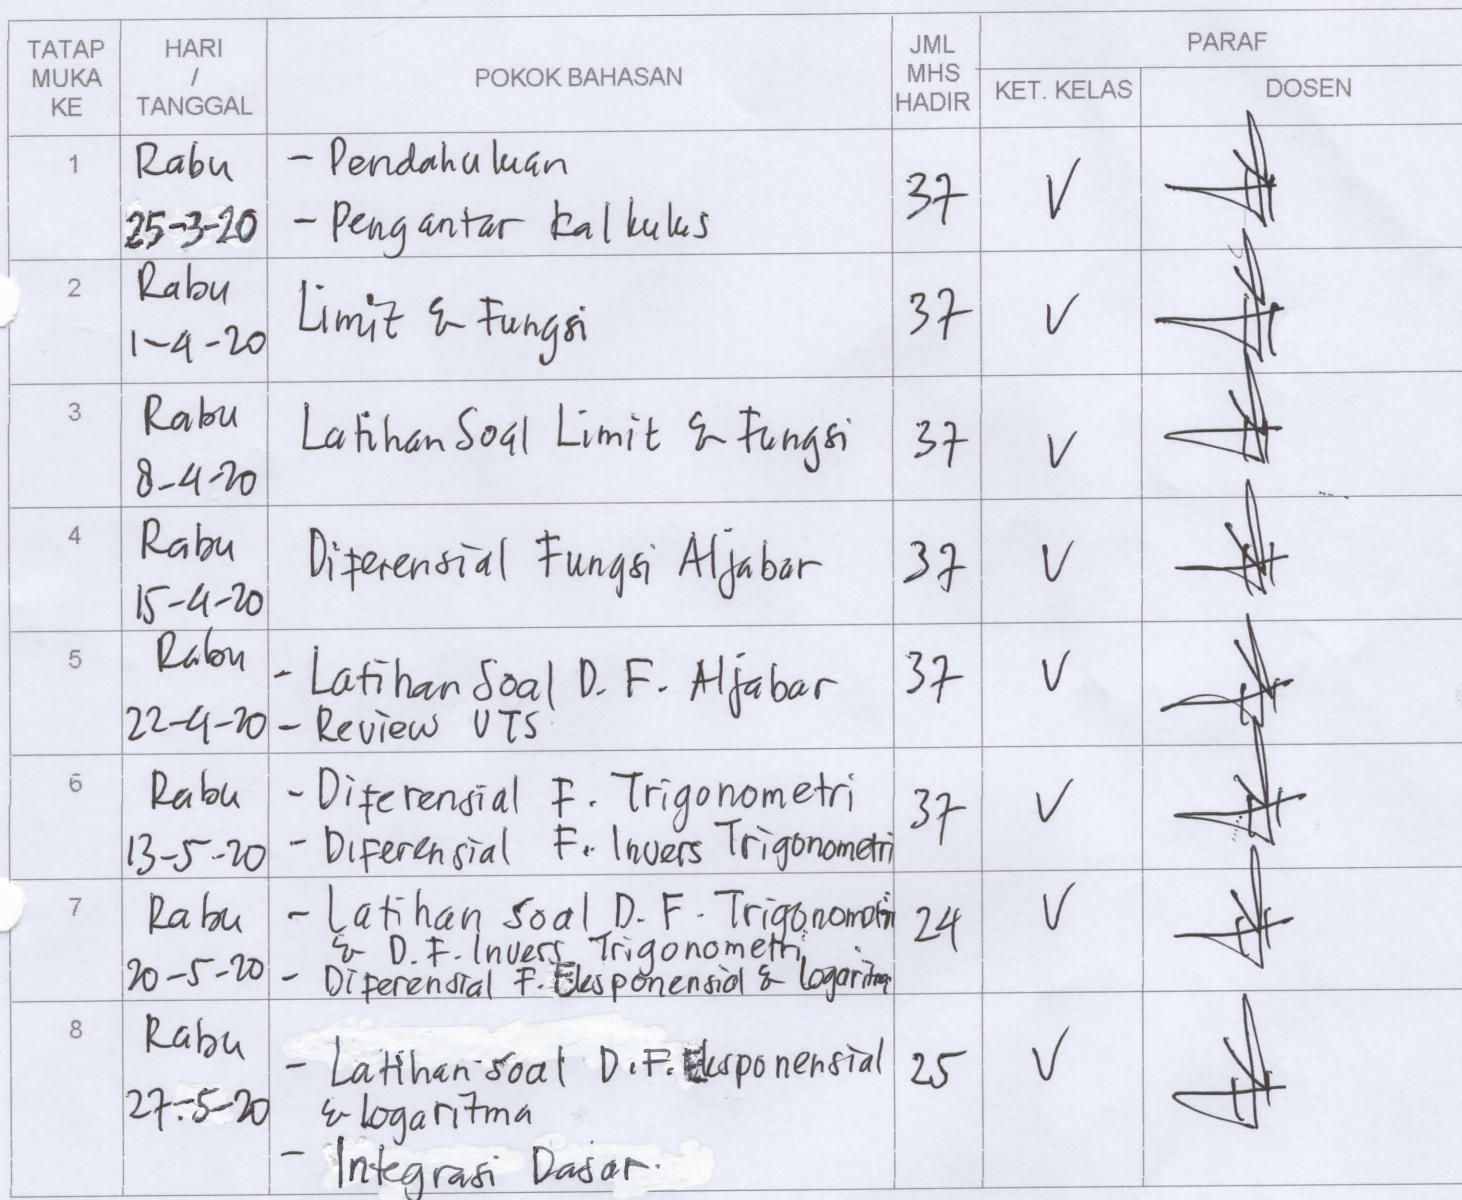 TATAP MUKA KE
HARI / TANGGAL
POKOK BAHASAN
JML MHS HADIR
PARAF
KET. KELAS
DOSEN
1
Rabu
25-3-20
- Pendahuluan
- Pengantar Kalkulus
37
V
2
Rabu
1-4-20
Limit & Fungsi
37
V
3
Rabu
8-4-20
Latihan Soal Limit & Fungsi
37
V
4
Rabu
15-4-20
Diferensial Fungsi Aljabar
37
V
5
Rabu
22-4-20
- Latihan Soal D. F. Aljabar
- Review UTS
37
V
6
Rabu
13-5-20
- Diferensial F. Trigonometri
- Diferensial F. Invers Trigonometri
37
V
7
Rabu
20-5-20
- Latihan Soal D. F. Trigonometri
& D. F. Invers Trigonometri
- Diferensial F. Eksponensial & Logaritma
24
V
8
Rabu
27-5-20
- Latihan Soal D.F. Eksponensial
& Logaritma
- Integrasi Dasar.
25
V